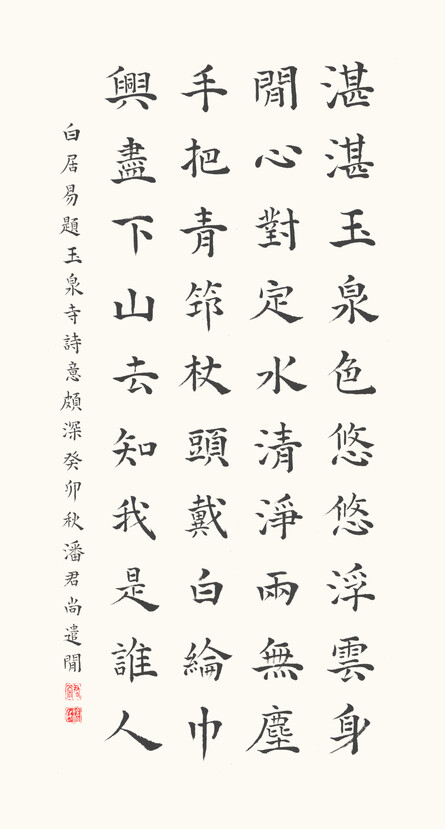 湛湛玉泉色悠悠浮雲身
閒心對定水清淨兩無塵
手把青筇杖頭戴白綸巾
興盡下山去知我是誰人
白居易題玉泉寺詩意頗深癸卯秋潘君尚遣閒